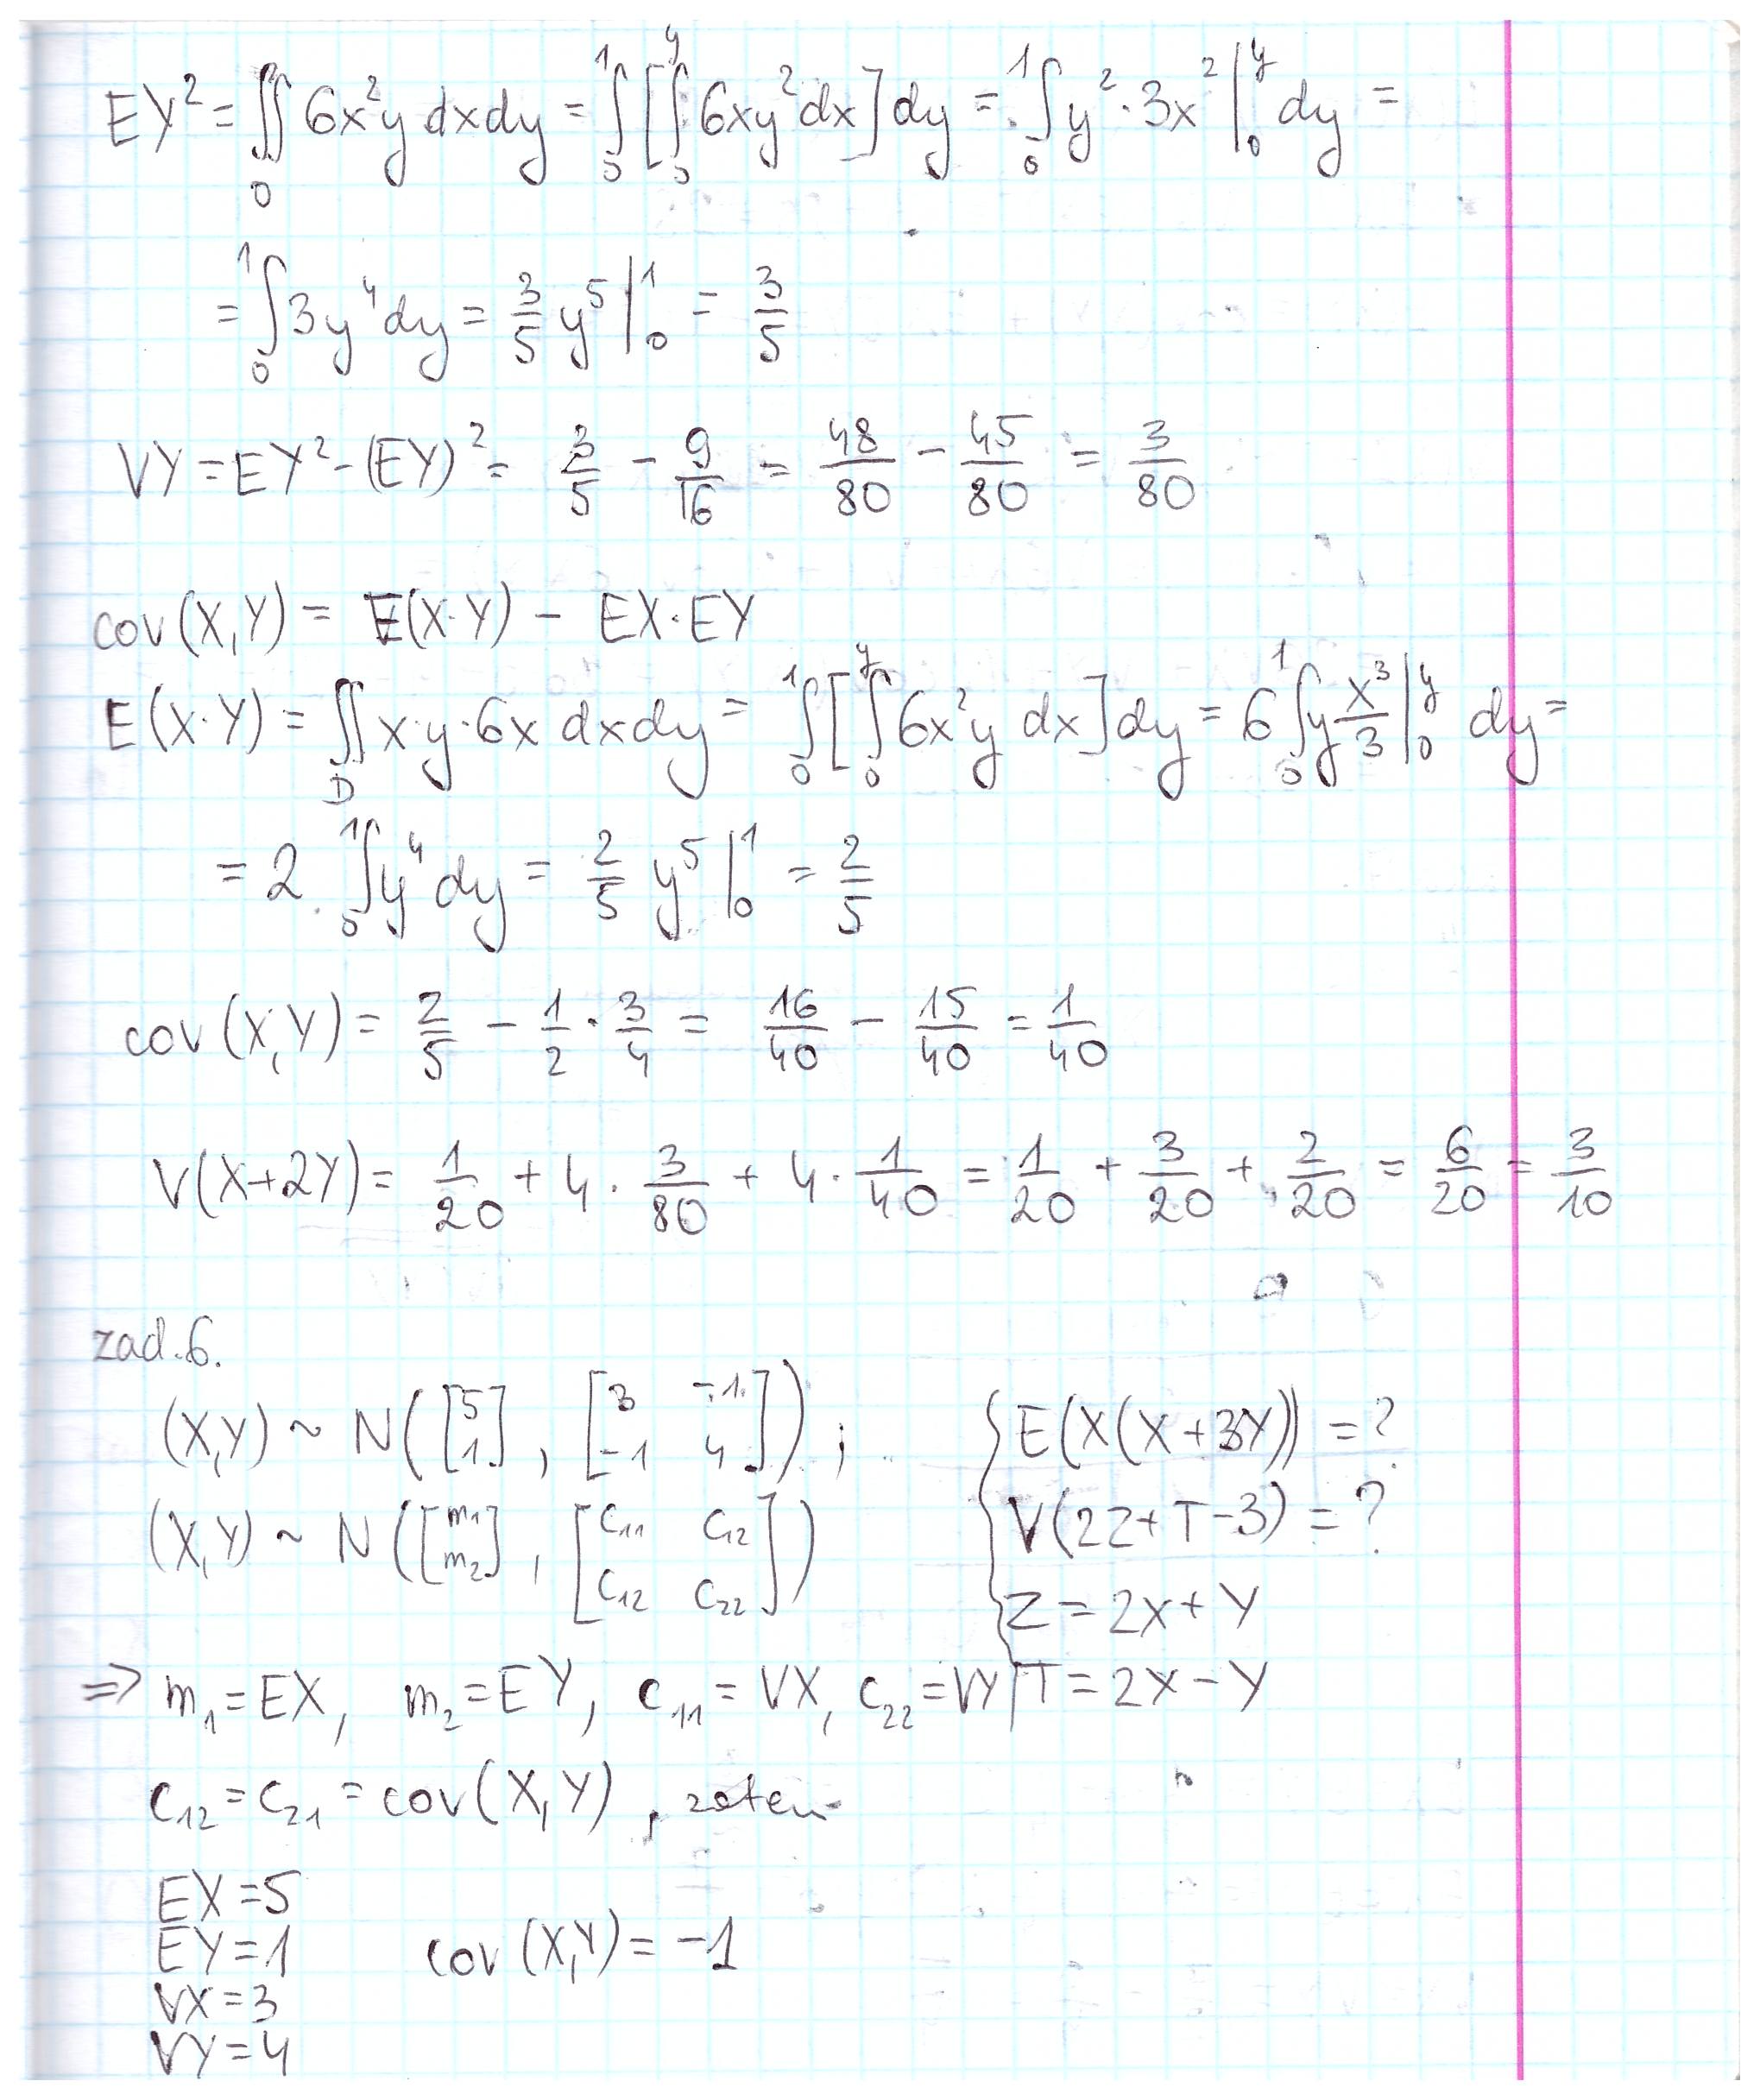 EY² = ∬_D 6x²y dxdy = ∫₀¹ [∫₀^y 6xy² dx] dy = ∫₀¹ y² · 3x² |₀^y dy =
= ∫₀¹ 3y⁴ dy = 3/5 y⁵ |₀¹ = 3/5
VY = EY² - (EY)² = 3/5 - 9/16 = 48/80 - 45/80 = 3/80
cov(X,Y) = E(X·Y) - EX·EY
E(X·Y) = ∬_D x·y·6x dxdy = ∫₀¹ [∫₀^y 6x²y dx] dy = 6 ∫₀¹ y x³/3 |₀^y dy =
= 2 ∫₀¹ y⁴ dy = 2/5 y⁵ |₀¹ = 2/5
cov(X,Y) = 2/5 - 1/2 · 3/4 = 16/40 - 15/40 = 1/40
V(X+2Y) = 1/20 + 4 · 3/80 + 4 · 1/40 = 1/20 + 3/20 + 2/20 = 6/20 = 3/10
zad.6.
(X,Y) ~ N([5 1], [3 -1 -1 4]);
(X,Y) ~ N([m₁ m₂], [c₁₁ c₁₂ c₁₂ c₂₂])
E(X(X+3Y)) = ?
V(2Z+T-3) = ?
Z = 2X+Y
T = 2X-Y
⇒ m₁ = EX, m₂ = EY, c₁₁ = VX, c₂₂ = VY
c₁₂ = c₂₁ = cov(X,Y), zatem
EX = 5
EY = 1 cov(X,Y) = -1
VX = 3
VY = 4